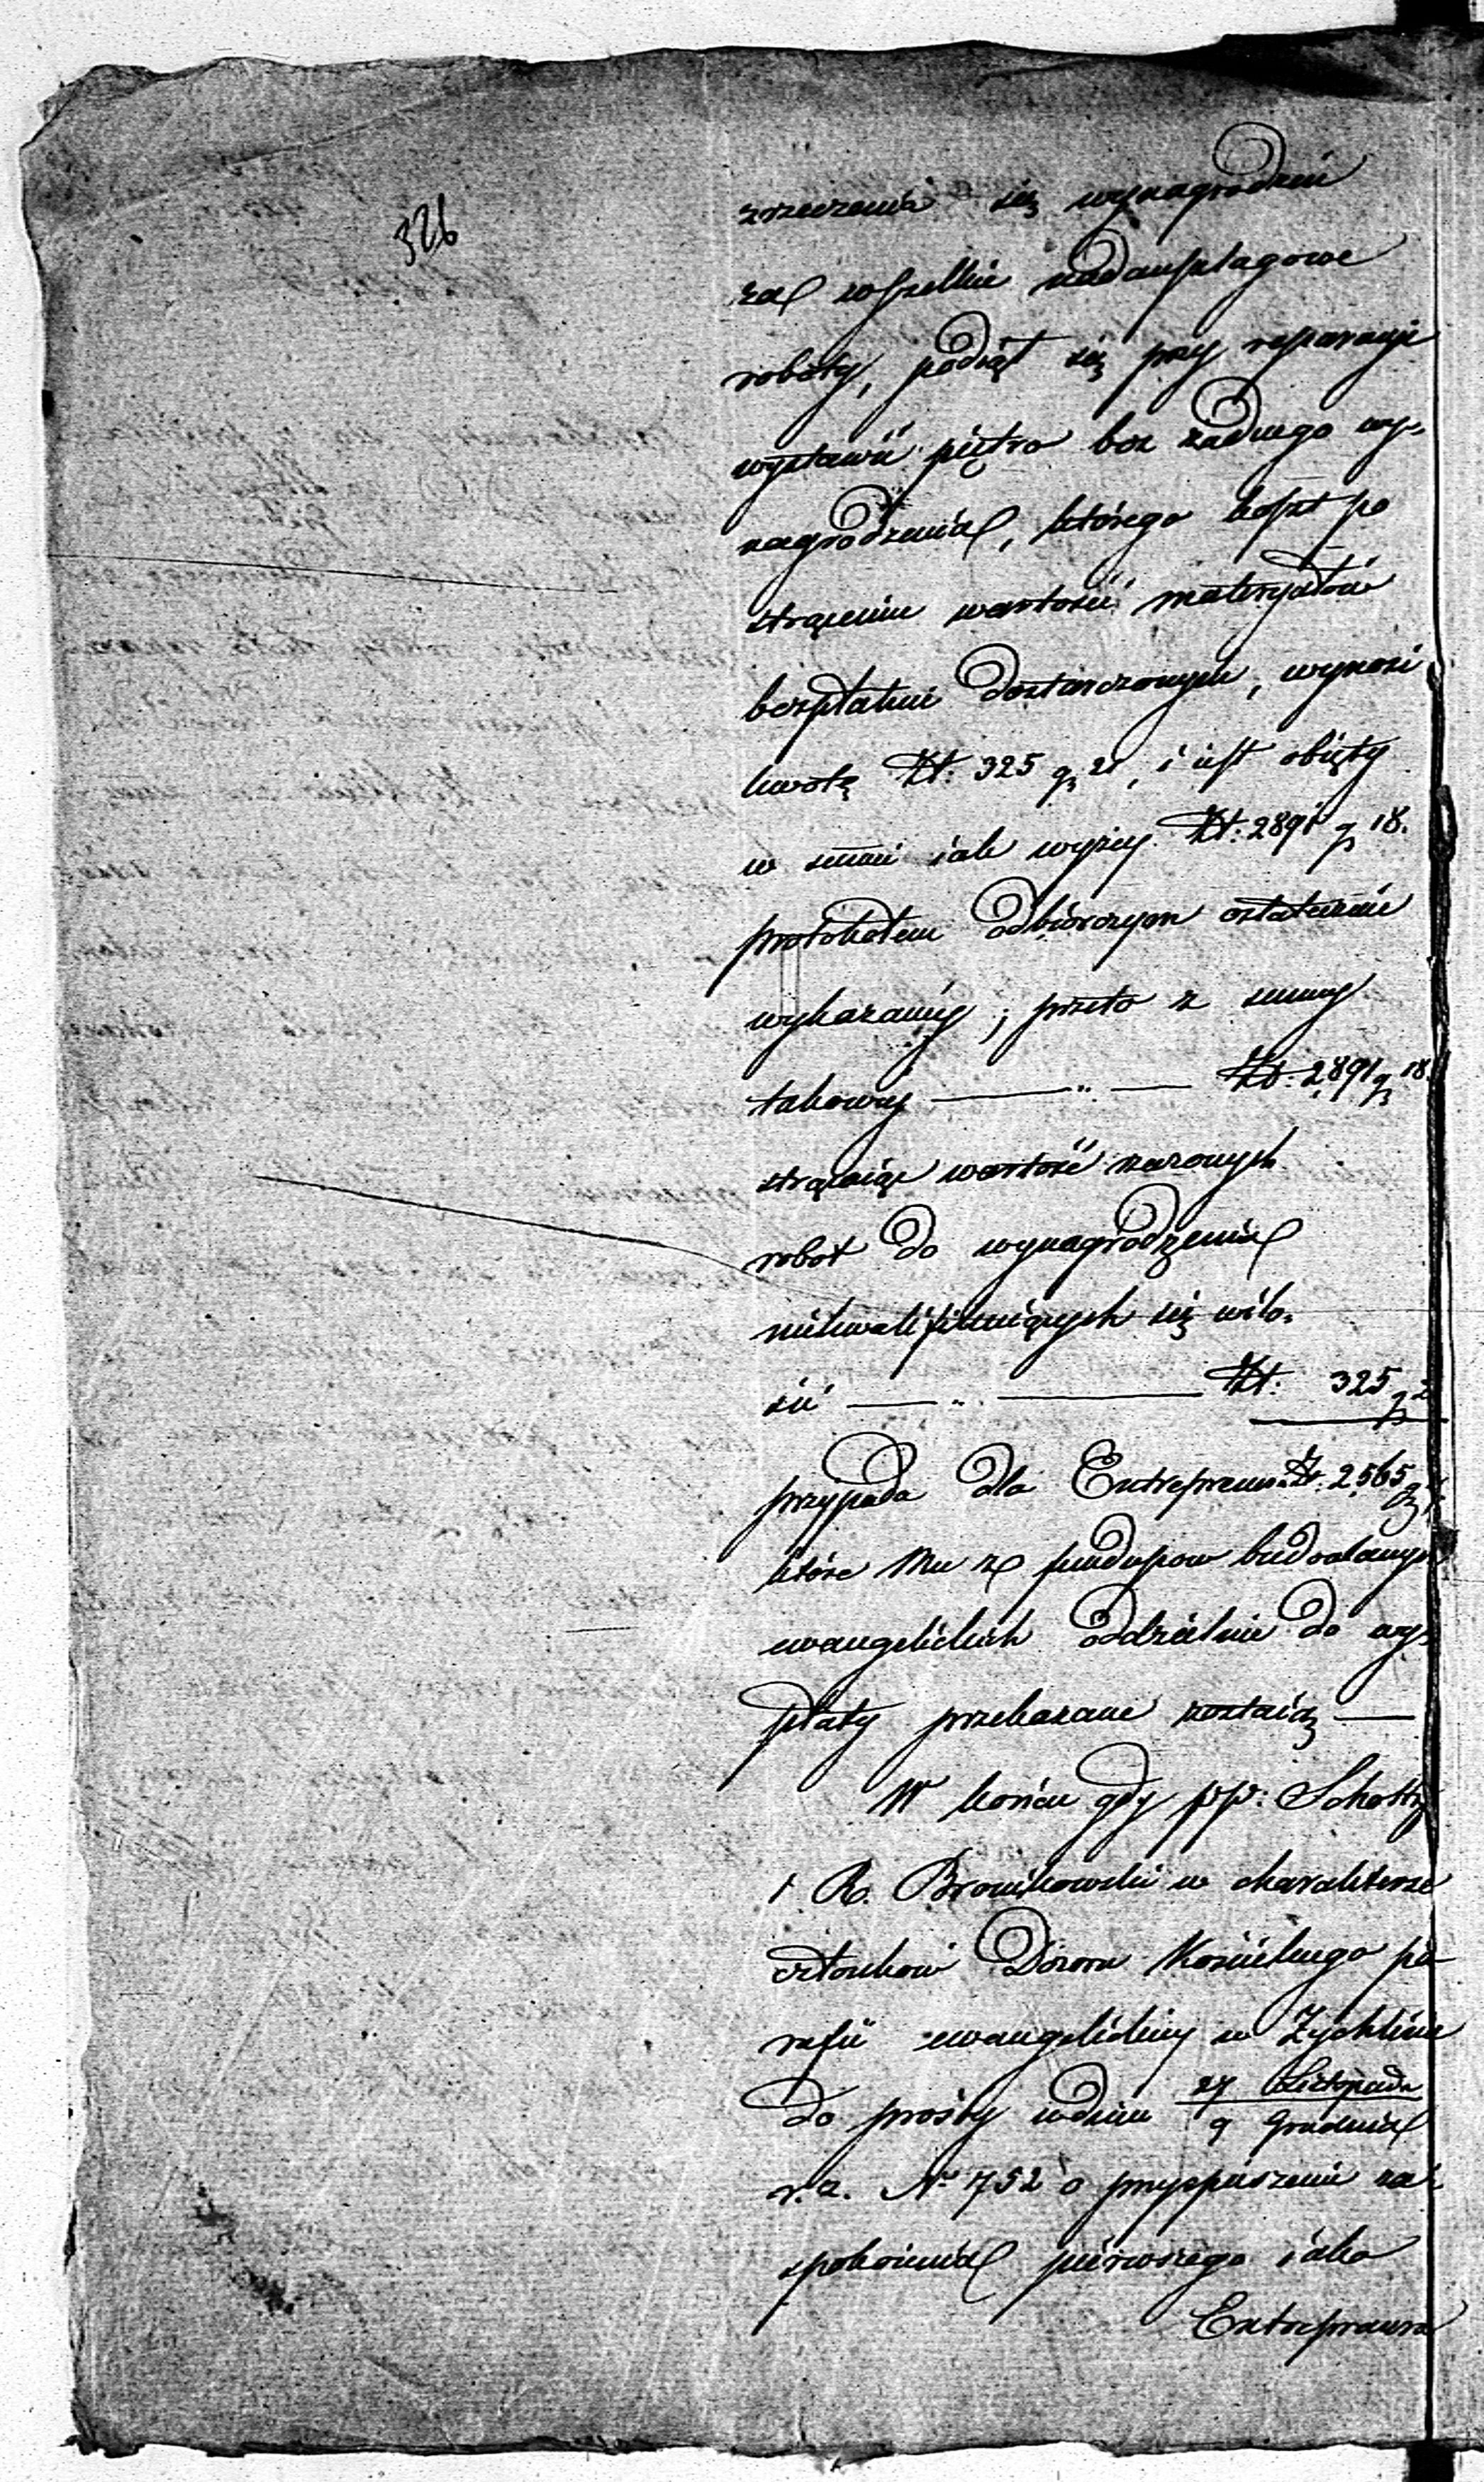 326
zrzeczenia się wynagrodzeń
za wszelkie nadanszlagowe
roboty, podiął się przy reparacyi
wystawić piętro bez żadnego wy-
nagrodzenia, którego koszt po
strąceniu wartości materyałów
bezpłatnie dostarczonych, wynosi
kwotę Złt: 325 gr 21, i iest obięty
w summie iak wyżey Złt: 2891 gr 18.
protokółem odbiorczym ostatecznie
wykazaney; przeto z summy
takowey —— „ —— Złt: 2891 gr 18.
strąciwszy wartość rzeczonych
robot do wynagrodzenia
niekwalifikuiących się w ilo-
ści —— „ —— Złt: 325 gr 2
przypada dla Entreprenera Zł: 2565 gr
które Mu z funduszow budowlanych
ewangelickich oddzielnie do wy-
płaty przekazane zostaią —
W końcu gdy PP: Scholtz
i R. Bronikowski w charakterze
członków Dozoru Kościelnego pa-
rafii ewangelickiey w Żychlinie
do prośby w dniu 27 Listopada
9 Grudnia
r. z. Nr 752 o przyspieszenie za-
spokoienia pierwszego iako
Entreprenera